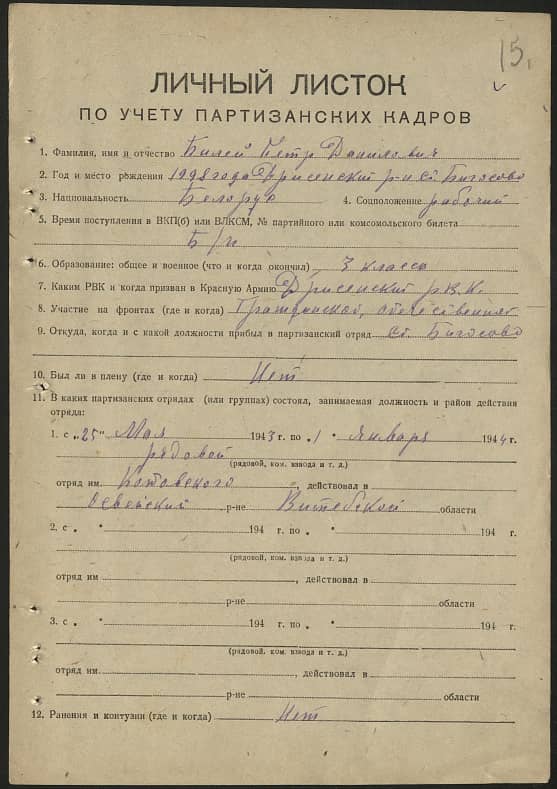 15.
ЛИЧНЫЙ ЛИСТОК
ПО УЧЕТУ ПАРТИЗАНСКИХ КАДРОВ
1. Фамилия, имя и отчество Билей Петр Данилович
2. Год и место рждения 1898 года Дрисенский р-н ст Бигосово
3. Национальность Белорус 4. Соцположение рабочий
5. Время поступления в ВКП(б) или ВЛКСМ, № партийного или комсомольского билета
Б/п
6. Образование: общее и военное (что и когда окончил) 3 класса
7. Каким РВК и когда призван в Красную Армию Дрисенский р.В.К.
8. Участие на фронтах (где и когда) Гражданской, отечественная
9. Откуда, когда и с какой должности прибыл в партизанский отряд ст. Бигосово
10. Был ли в плену (где и когда) Нет
11. В каких партизанских отрядах (или группах) состоял, занимаемая должность и район действия
отряда:
1. с „25" Мая 1943 г. по „1" января 1944 г.
рядовой
(рядовой, ком. взвода и т. д.)
отряд им Котовского, действовал в
Освейский р-не Витебской области
2. с „ " 194 г. по „ " 194 г.
(рядовой, ком. взвода и т. д.)
отряд им , действовал в
р-не области
3. с „ " 194 г. по „ " 194 г.
(рядовой, ком. взвода и т. д.)
отряд им. , действовал в
р-не области
12. Ранения и контузии (где и когда) Нет